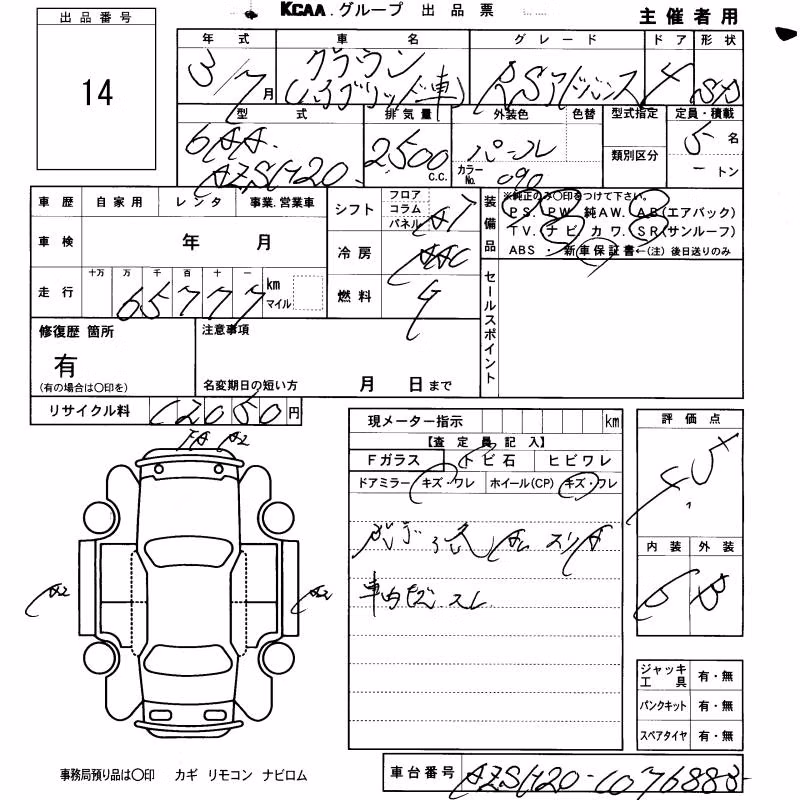 KCAA.グループ 出品票
主催者用
出品番号
14
年式 車名 グレード ドア 形状
3/7月 クラウン (ハイブリッド車) RSアドバンス 4 SD
型式 排気量 外装色 色替 型式指定 定員・積載
類別区分
6AA- AZSH20- 2,500 C.C. パール カラーNo. 090 5名
ートン
車歴 自家用 レンタ 事業.営業車
シフト フロア コラム パネル AT
装備品
※純正のみ〇印をつけて下さい。
PS. PW. 純AW. AB(エアバック)
TV. ナビ カワ. SR(サンルーフ)
ABS ・ 新車保証書←(注)後日送りのみ
車検 年 月
冷房 AAC
走行 十万 万 千 百 十 一
65777 km マイル
燃料 G
セールスポイント
修復歴 箇所
有
(有の場合は〇印を)
注意事項
名変期日の短い方 月 日まで
リサイクル料 12050円
現メーター指示 km
【査定員記入】
Fガラス トビ石 ヒビワレ
ドアミラー キズ・ワレ ホイール(CP) キズ・フレ
評価点
4.5
A2
スリA
車内 スレ
内装 外装
B B
A2 A2
ジャッキ工具 有・無
パンクキット 有・無
スペアタイヤ 有・無
事務局預り品は〇印 カギ リモコン ナビロム
車台番号 AZSH20-1076883-